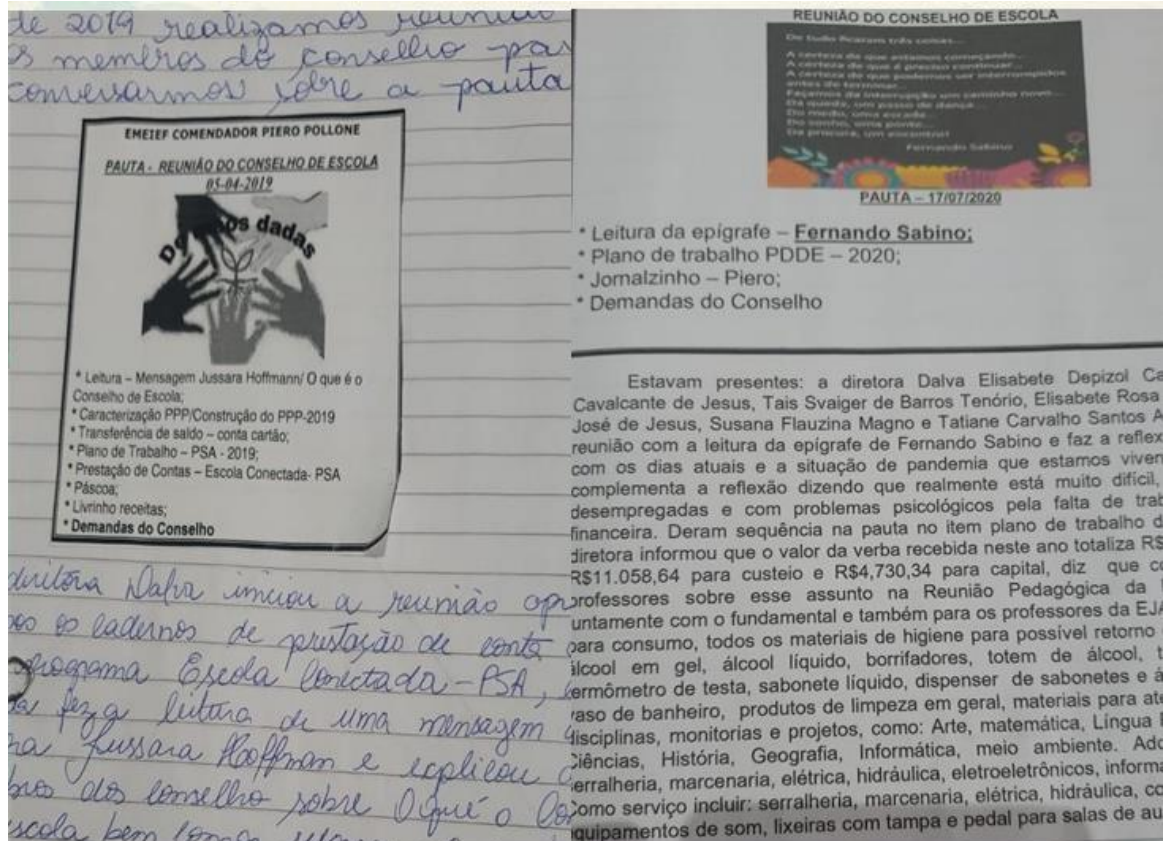 de 2019 realizamos reunião
membros do conselho
conversarmos sobre a pauta
EMEIEF COMENDADOR PIERO POLLONE
PAUTA - REUNIÃO DO CONSELHO DE ESCOLA
05-04-2019
De mãos dadas
* Leitura – Mensagem Jussara Hoffmann/ O que é o
Conselho de Escola;
* Caracterização PPP/Construção do PPP-2019
* Transferência de saldo – conta cartão;
* Plano de Trabalho – PSA - 2019;
* Prestação de Contas – Escola Conectada- PSA
* Páscoa;
* Livrinho receitas;
* Demandas do Conselho
Dalva iniciou a reunião
os cadernos de prestação de conta
programa Escola Conectada – PSA,
fez a leitura de uma mensagem
Jussara Hoffman e explicou
dos conselho sobre O que é o
escola bem como
REUNIÃO DO CONSELHO DE ESCOLA
De tudo ficaram três coisas...
A certeza de que estamos começando...
A certeza de que é preciso continuar...
A certeza de que podemos ser interrompidos
antes de terminar...
Façamos da interrupção um caminho novo...
Da queda, um passo de dança...
Do medo, uma escada...
Do sonho, uma ponte...
Da procura, um encontro!
Fernando Sabino
PAUTA – 17/07/2020
* Leitura da epígrafe – Fernando Sabino;
* Plano de trabalho PDDE – 2020;
* Jornalzinho – Piero;
* Demandas do Conselho
Estavam presentes: a diretora Dalva Elisabete Depizol
Cavalcante de Jesus, Tais Svaiger de Barros Tenório, Elisabete Rosa
José de Jesus, Susana Flauzina Magno e Tatiane Carvalho Santos
reunião com a leitura da epígrafe de Fernando Sabino e faz a
com os dias atuais e a situação de pandemia que estamos
complementa a reflexão dizendo que realmente está muito difícil,
desempregadas e com problemas psicológicos pela falta de
financeira. Deram sequência na pauta no item plano de trabalho
diretora informou que o valor da verba recebida neste ano totaliza R$
R$11.058,64 para custeio e R$4,730,34 para capital, diz que
professores sobre esse assunto na Reunião Pedagógica da
untamente com o fundamental e também para os professores da EJA
para consumo, todos os materiais de higiene para possível retorno
álcool em gel, álcool líquido, borrifadores, totem de álcool,
termômetro de testa, sabonete líquido, dispenser de sabonetes e
vaso de banheiro, produtos de limpeza em geral, materiais para
disciplinas, monitorias e projetos, como: Arte, matemática, Língua
Ciências, História, Geografia, Informática, meio ambiente.
serralheria, marcenaria, elétrica, hidráulica, eletroeletrônicos,
Como serviço incluir: serralheria, marcenaria, elétrica, hidráulica,
equipamentos de som, lixeiras com tampa e pedal para salas de